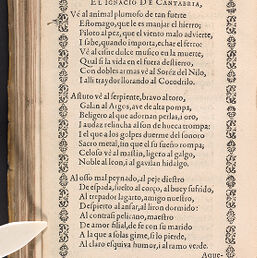 EL IGNACIO DE CANTABRIA,
Vé al animal plumoso de tan fuerte
Estomago, que le es manjar el hierro;
Piloto al pez, que el viento malo advierte,
I sabe, quando importa, echar el ferro:
Vé al cisne dulce musico en la muerte,
Qual si la vida en el fuera destierro,
Con dobles armas vé al Soréz del Nilo,
I alli traydor llorando al Cocodrilo.
Astuto vé al serpiente, bravo al toro,
Galan al Argos, ave de alta pompa,
Beligero al que adornan perlas, i oro,
I audaz relincha al son de hueca trompa:
I el que a los golpes duerme del sonoro
Sacro metal, sin que al su sueño rompa;
Celoso vé al mastin, ligero al galgo,
Noble al Icon, i al gavilan hidalgo.
Al osso mal peynado, al peje diestro
De espada, suelto al corço, al buey sufrido,
Al trepador lagarto, amigo nuestro,
Despierto al ansar, al liron dormido:
Al contrast pelicano, maestro
De amor filial, de su marido
A la que a solas gime, si lo pierde,
Al claro esquiva humor, i al ramo verde.
Aque-